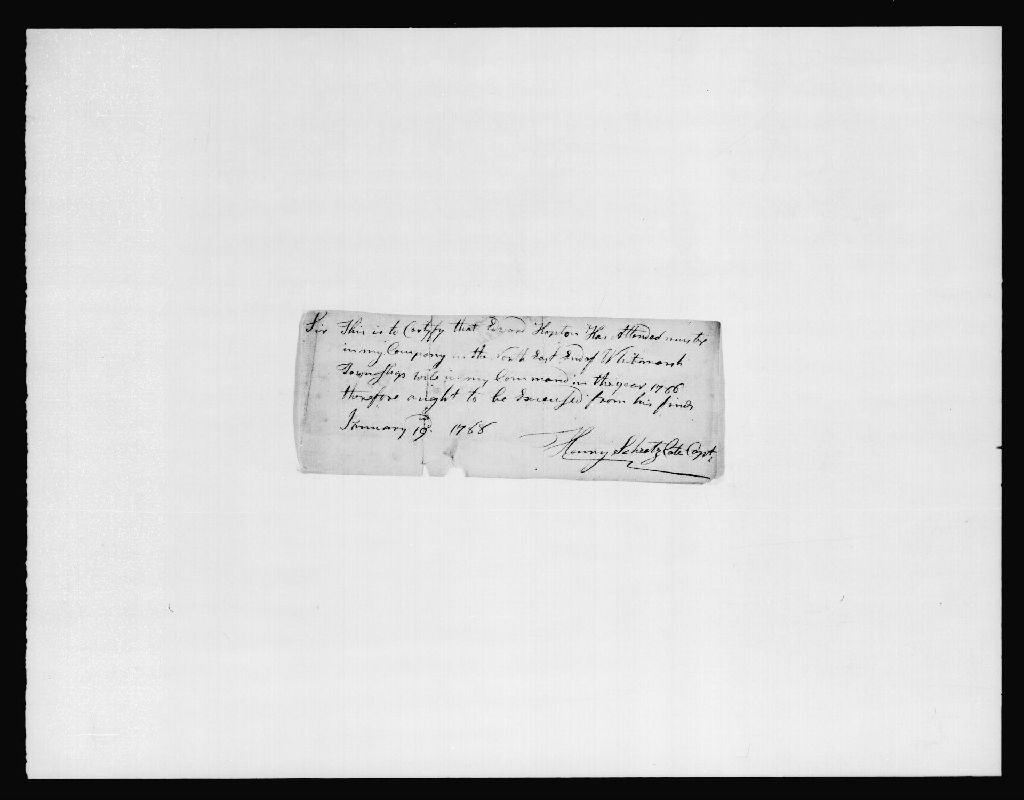 Sir This is to Certyfy that Edward Hopton Has Attended muster
in my Company in the North East End of Whitemarsh
Townships wile in my Command in the year 1786
therefore aught to be Excused from his fines
January 19 1788
Henry Scheetz Late Capt.